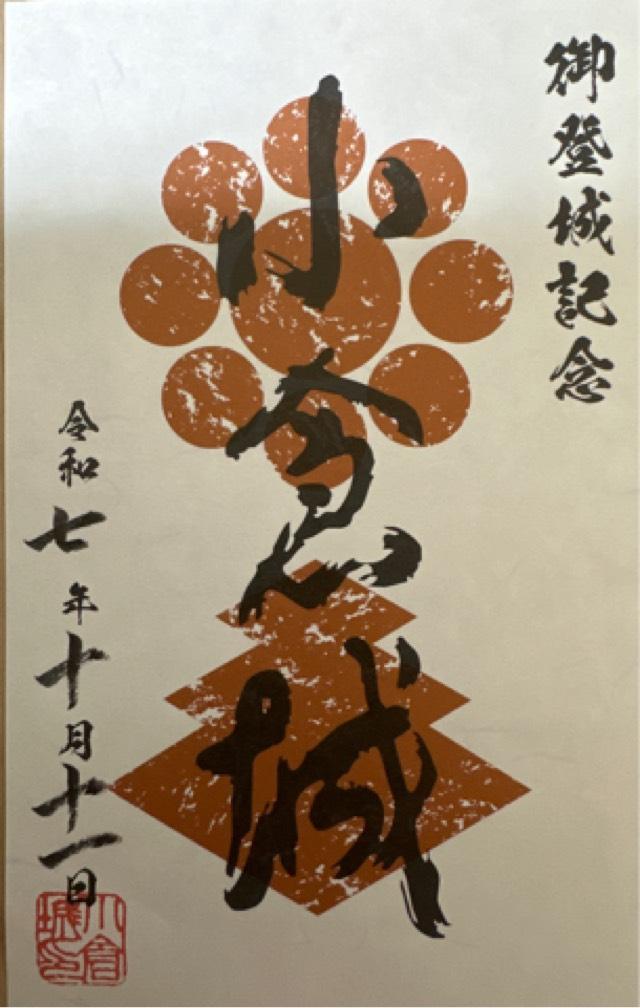 御登城記念
小倉城
令和七年十月十一日
小倉城印